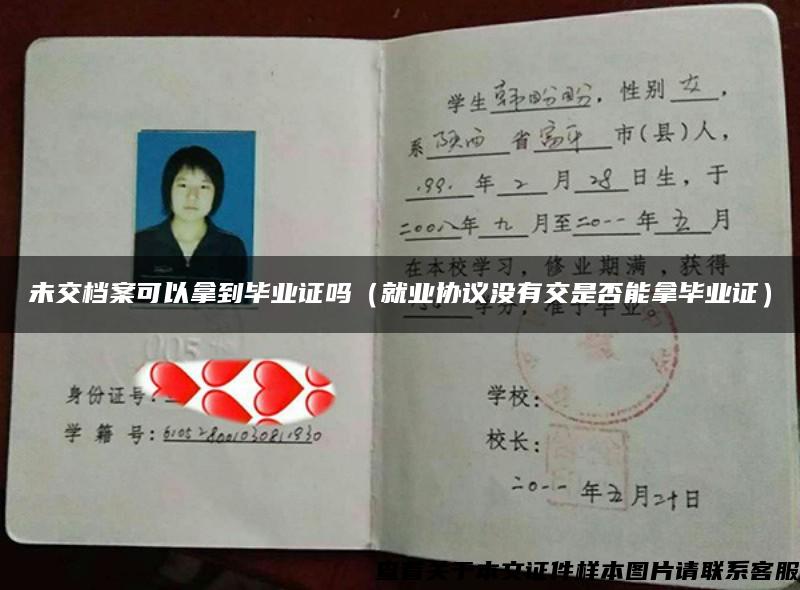 学生韩盼盼，性别女，
系陕西省富平市(县)人，
1991年2月28日生，于
二00八年九月至二0一一年五月
在本校学习，修业期满，获得
未交档案可以拿到毕业证吗（就业协议没有交是否能拿毕业证）
学分，准予毕业。
005
身份证号：
学籍号：610528001030811930
学校：
校长：
二0一一年五月二十日
查看关于本文证件样本图片请联系客服